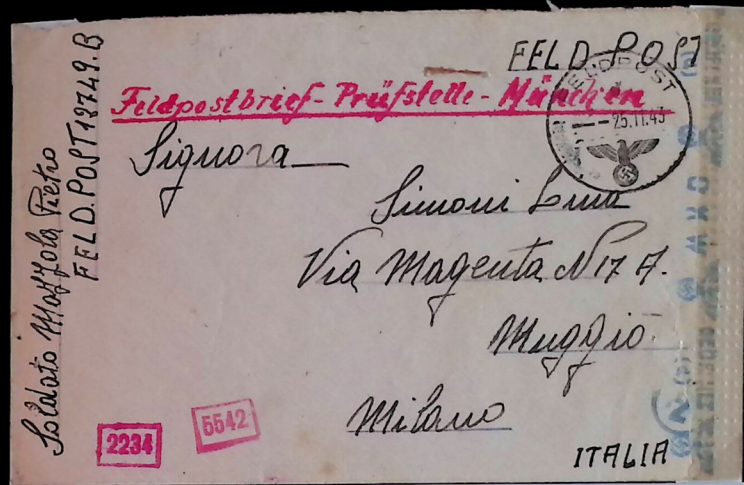 FELD POST
Feldpostbrief-Prüfstelle-München
FELDPOST
25.11.43
Signora
Simoni Lina
Via Magenta N 17 A.
Muggiò.
Milano
ITALIA
Soldato Mazzola Pietro
FELD.POST 12749.B
2234
5542
OKW